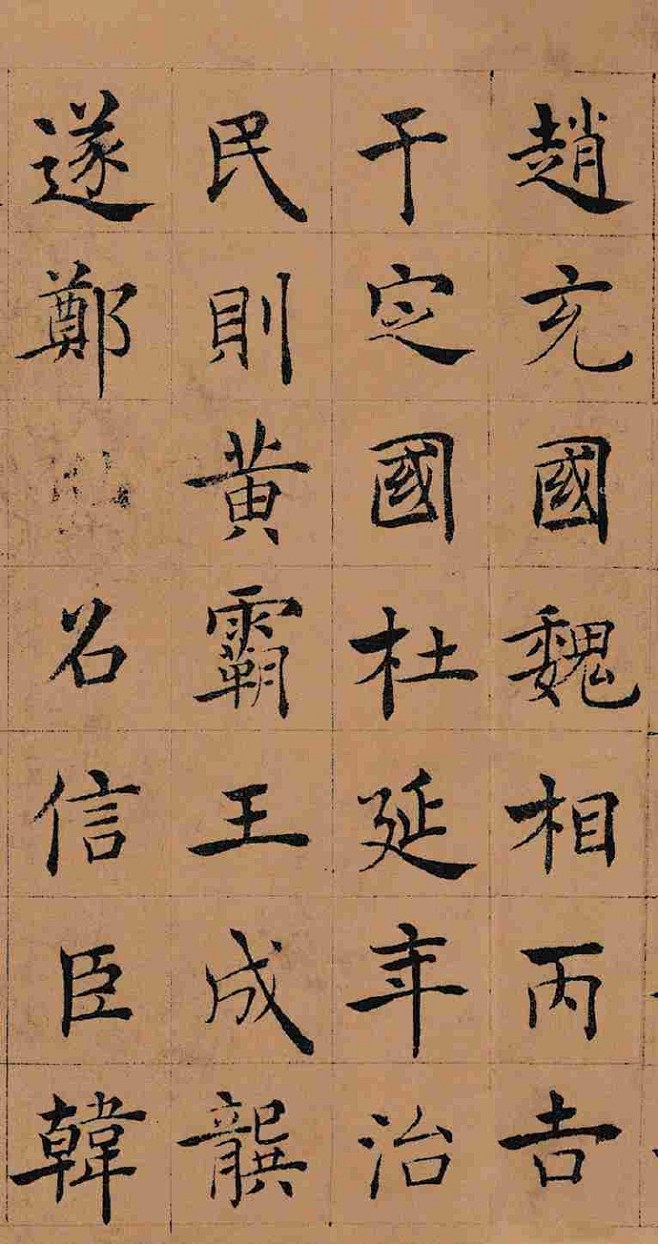 趙充國魏相丙吉
于定國杜延年治
民則黃霸王成龔
遂鄭名信臣韓